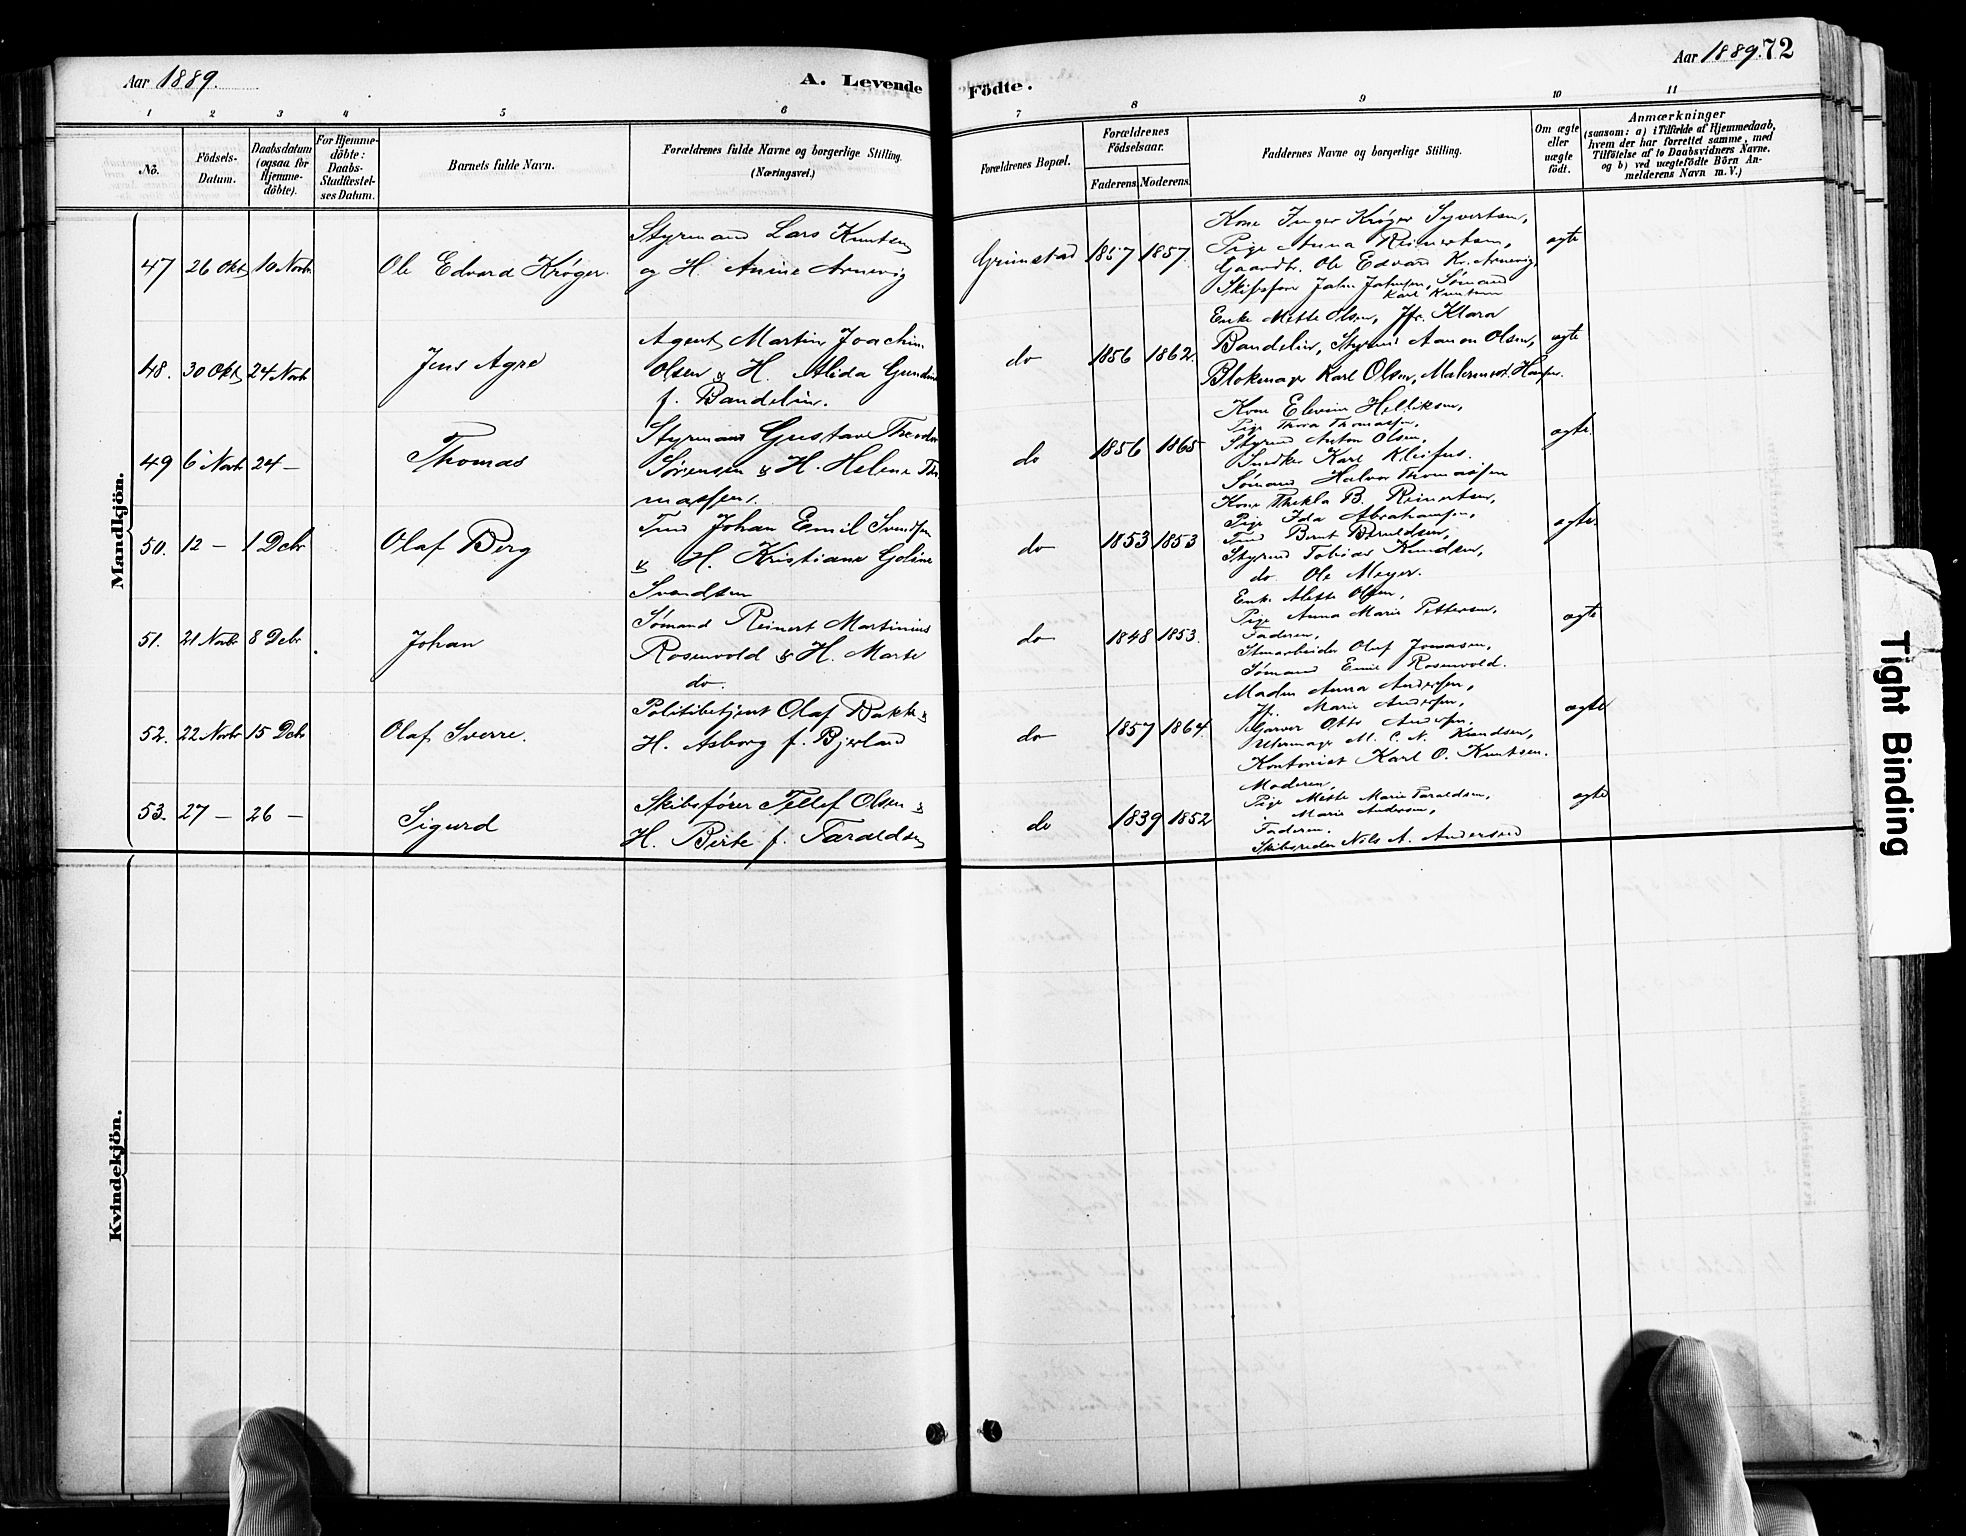 Aar 1889.
A. Levende Födte.
Aar 1889. 72
1 2 3 4 5 6 7 8 9 10 11
No.
Födsels-Datum.
Daabsdatum (ogsaa for Hjemmedöbte).
For Hjemmedöbte: Daabs-Stadfæstelses Datum.
Barnets fulde Navn.
Forældrenes fulde Navne og borgerlige Stilling. (Næringsvei.)
Forældrenes Bopæl.
Forældrenes Födselsaar.
Faderens. Moderens.
Faddernes Navne og borgerlige Stilling.
Om ægte eller uægte födt.
Anmærkninger
(saasom: a) i Tilfælde af Hjemmedaab,
hvem der har forrettet samme, med
Tilföielse af to Daabsvidners Navne.
og b) ved uægtefödte Börn An-
melderens Navn m. V.)
Mandkjön.
47 26 Okt 10 Novbr Ole Edvard Krøger.
Styrmand Lars Knutsen
og H. Anine Arnevig
Grimstad 1857 1857
Kone Inger Krøger Syvertsen,
Pige Anna Reinertsen,
Gaardbr. Ole Edvard Kr. Arnevig,
Skibsfører John Johnsen, Sømand
Karl Knutsen
ægte
48. 30 Okt 24 Novbr Jens Agre
Agent Martin Joachim
Olsen & H. Alida Gundine
f. Bandelin.
do 1856 1862.
Enke Mette Olsen, Jfr. Klara
Bandelin, Styrmd Aanon Olsen,
Blokmager Karl Olsen, Malermest. Hansen.
ægte
49 6 Novbr 24 - Thomas
Styrmand Gustav Theodor
Sørensen & H. Helene Tho
massen.
do 1856 1865
Kone Elevine Helliksen,
Pige Thora Thomassen,
Styrmd Anton Olsen,
Snedker Karl
Sømand Halvor Thomassen
ægte.
50. 12 - 1 Decbr Olaf Berg
Tmd Johan Emil Svendsen
& H. Kristiane Goline
Svendsen
do 1853 1853
Kone Thekla B. Reinertsen,
Pige Ida Abrahamsen,
Tmd Bernt Berntsen,
Styrmd Tobias Knudsen,
do. Ole Meyer.
ægte
51. 21 Novbr 8 Decbr Johan
Sømand Reinert Martinius
Rosenvold & H. Marte
do.
do 1848 1853.
Enke Alette Olsen,
Pige Anna Marie Pettersen,
Faderen,
Stenarbeider Oluf Jonassen,
Sømand Emil Rosenvold.
ægte
52. 22 Novbr 15 Decbr Olaf Sverre.
Politibetjent Olaf Bakke &
H. Asborg f. Bjerland
do 1857 1864.
Madm Anna Andersen,
Jfr. Marie Andersen,
Garver Otto Andersen,
Uhrmager M. C. N. Knudsen,
Kontorist Karl O. Knutsen.
ægte
53. 27 - 26 - Sigurd
Skibsfører Tellef Olsen &
H. Birte f. Taraldsen
do 1839 1852
Moderen,
Pige Mette Marie Taraldsen,
Marie Andersen,
Faderen.
Skibsreder Nils A. Andersen
ægte
Kvindekjön.
Tight Binding